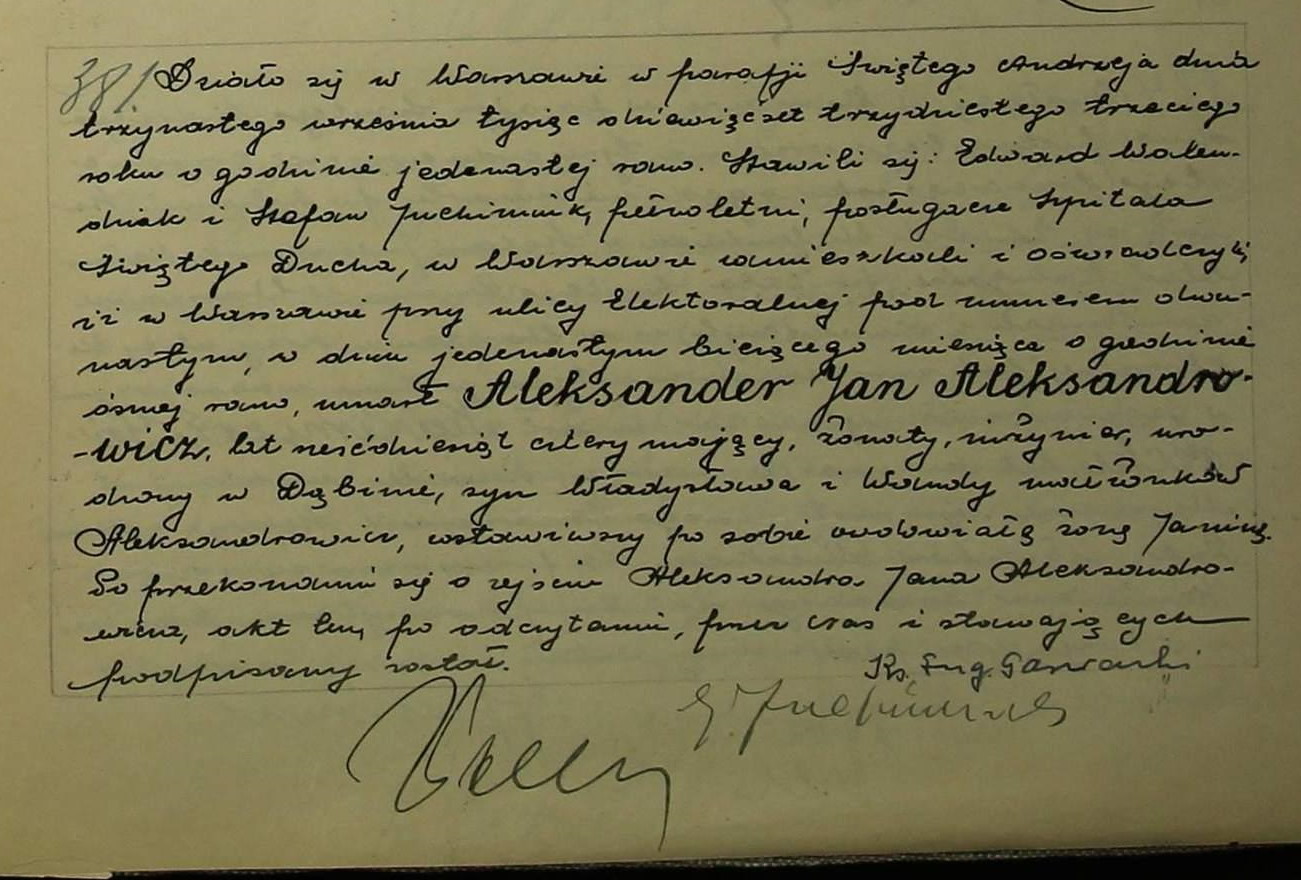 381. Działo się w Warszawie w parafji Świętego Andrzeja dnia
trzynastego września tysiąc dziewięćset trzydziestego trzeciego
roku o godzinie jedenastej rano. Stawili się: Edward Walen-
dziak i Stefan Juchimiuk, pełnoletni, posługacze Szpitala
Świętego Ducha, w Warszawie zamieszkali i oświadczyli,
iż w Warszawie przy ulicy Elektoralnej pod numerem dwu-
nastym, w dniu jedenastym bieżącego miesiąca o godzinie
ósmej rano, umarł Aleksander Jan Aleksandro-
-wicz, lat sześćdziesiąt cztery mający, żonaty, inżynier, uro-
dzony w Dąbiu, syn Władysława i Wandy małżonków
Aleksandrowicz, zostawiwszy po sobie owdowiałą żonę Janinę.
Po przekonaniu się o zejściu Aleksandra Jana Aleksandro-
wicza, akt ten, po odczytaniu, przez nas i stawających
podpisany został.
Ks. Eug.
S. Juchimiuk